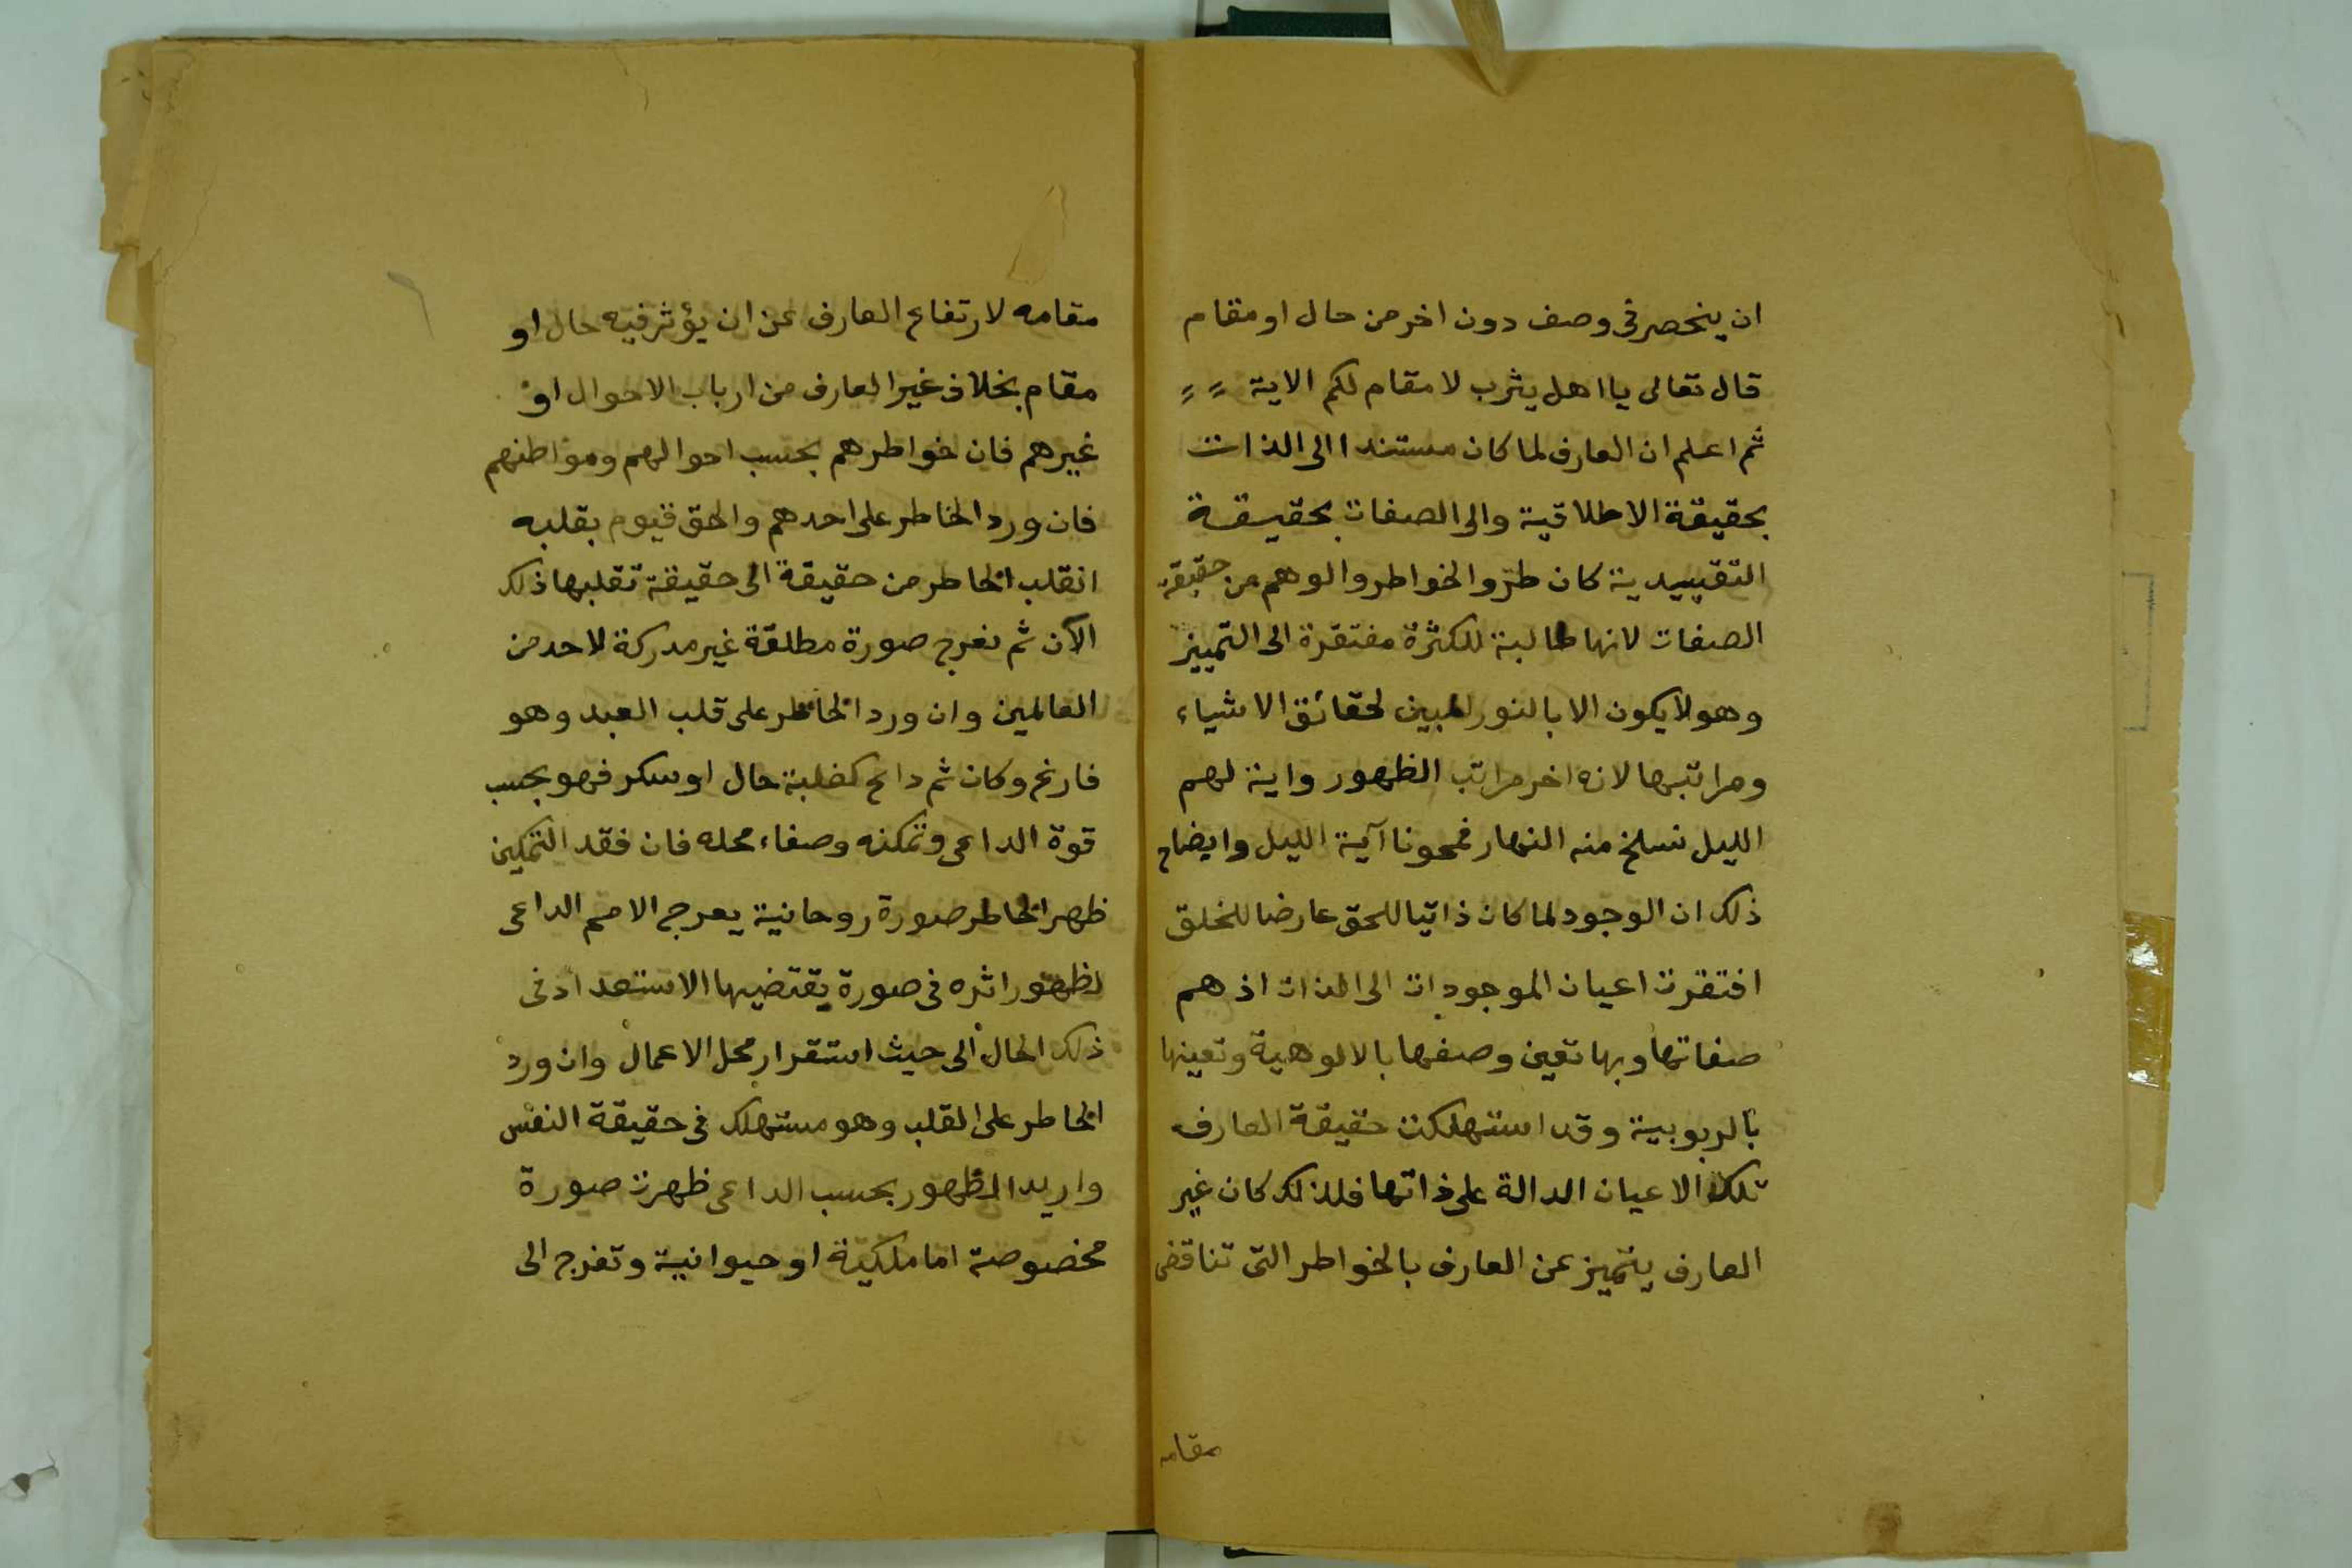 ان ينحصر فى وصف دون اخر من حال او مقام
قال تعالى يا اهل يثرب لا مقام لكم الاية
ثم اعلم ان العارف لما كان مستندا الى الذات
بحقيقة الاطلاقية والى الصفات بحقيقة
التقييدية كان طرو الخواطر والوهم من حقيقة
الصفات لانها طالبة للكثرة مفتقرة الى التمييز
وهو لا يكون الا بالنور المبين لحقائق الاشياء
ومراتبها لانه اخر مراتب الظهور واية لهم
الليل نسلخ منه النهار فمحونا آية الليل وايضاح
ذلك ان الوجود لما كان ذاتيا للحق عارضا للخلق
افتقرت اعيان الموجودات الى الذات اذ هم
صفاتها وبها تعين وصفها بالالوهية وتعينها
بالربوبية وقد استهلكت حقيقة العارف
تلك الاعيان الدالة على ذاتها فلذلك كان غير
العارف يتميز عن العارف بالخواطر التى تناقض
مقامه
مقامه لارتفاع العارف عن ان يؤثر فيه حال او
مقام بخلاف غير العارف من ارباب الاحوال او
غيرهم فان خواطرهم بحسب احوالهم ومواطنهم
فان ورد الخاطر على احدهم والحق قيوم بقلبه
انقلب الخاطر من حقيقة الى حقيقة تقلبها ذلك
الآن ثم تعرج صورة مطلقة غير مدركة لاحد من
العالمين وان ورد الخاطر على قلب العبد وهو
فارغ وكان ثم داع كغلبة حال او سكر فهو بحسب
قوة الداعى وتمكنه وصفاء محله فان فقد التمكين
ظهر الخاطر صورة روحانية يعرج الامم الداعى
لظهور اثره فى صورة يقتضيها الاستعداد فى
ذلك الحال الى حيث استقرار محل الاعمال وان ورد
الخاطر على القلب وهو مستهلك فى حقيقة النفس
واريد الظهور بحسب الداعى ظهرت صورة
مخصوصة اما ملكية او حيوانية وتعرج الى